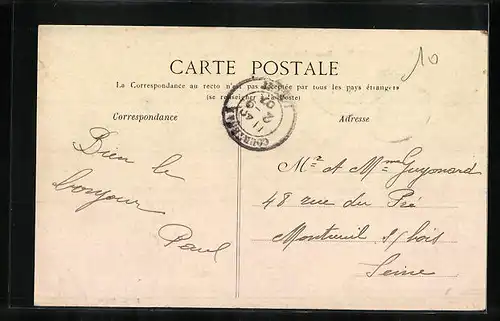 10
CARTE POSTALE
La Correspondance au recto n'est pas acceptée par tous les pays étrangers
(se renseigner à la Poste)
Correspondance
Adresse
Bien le
bonjour
Paul
Mr et Mme Guyonard
48 rue du Pré
Montreuil s/bois
Seine